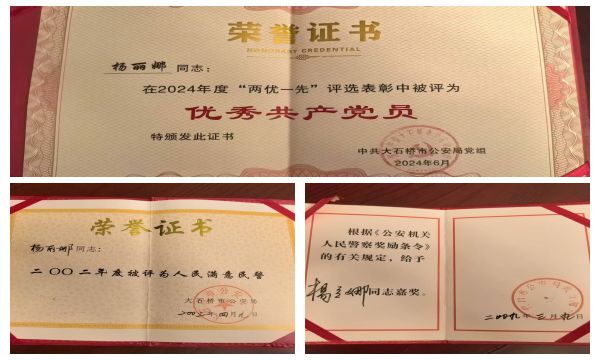 荣誉证书
HONORARY CREDENTIAL
杨丽娜 同志:
在2024年度“两优一先”评选表彰中被评为
优秀共产党员
特颁发此证书
中共大石桥市公安局党组
2024年6月
荣誉证书
杨丽娜同志:
二〇〇二年度被评为人民满意民警
大石桥市公安局
根据《公安机关
人民警察奖励条令》
的有关规定,给予
杨丽娜同志嘉奖。